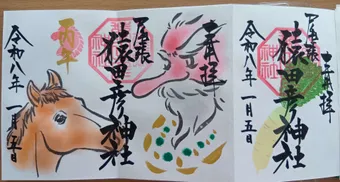 奉拝
尾張
猿田彦神社
令和八年一月五日
奉拝
尾張
猿田彦神社
丙午
令和八年一月五日